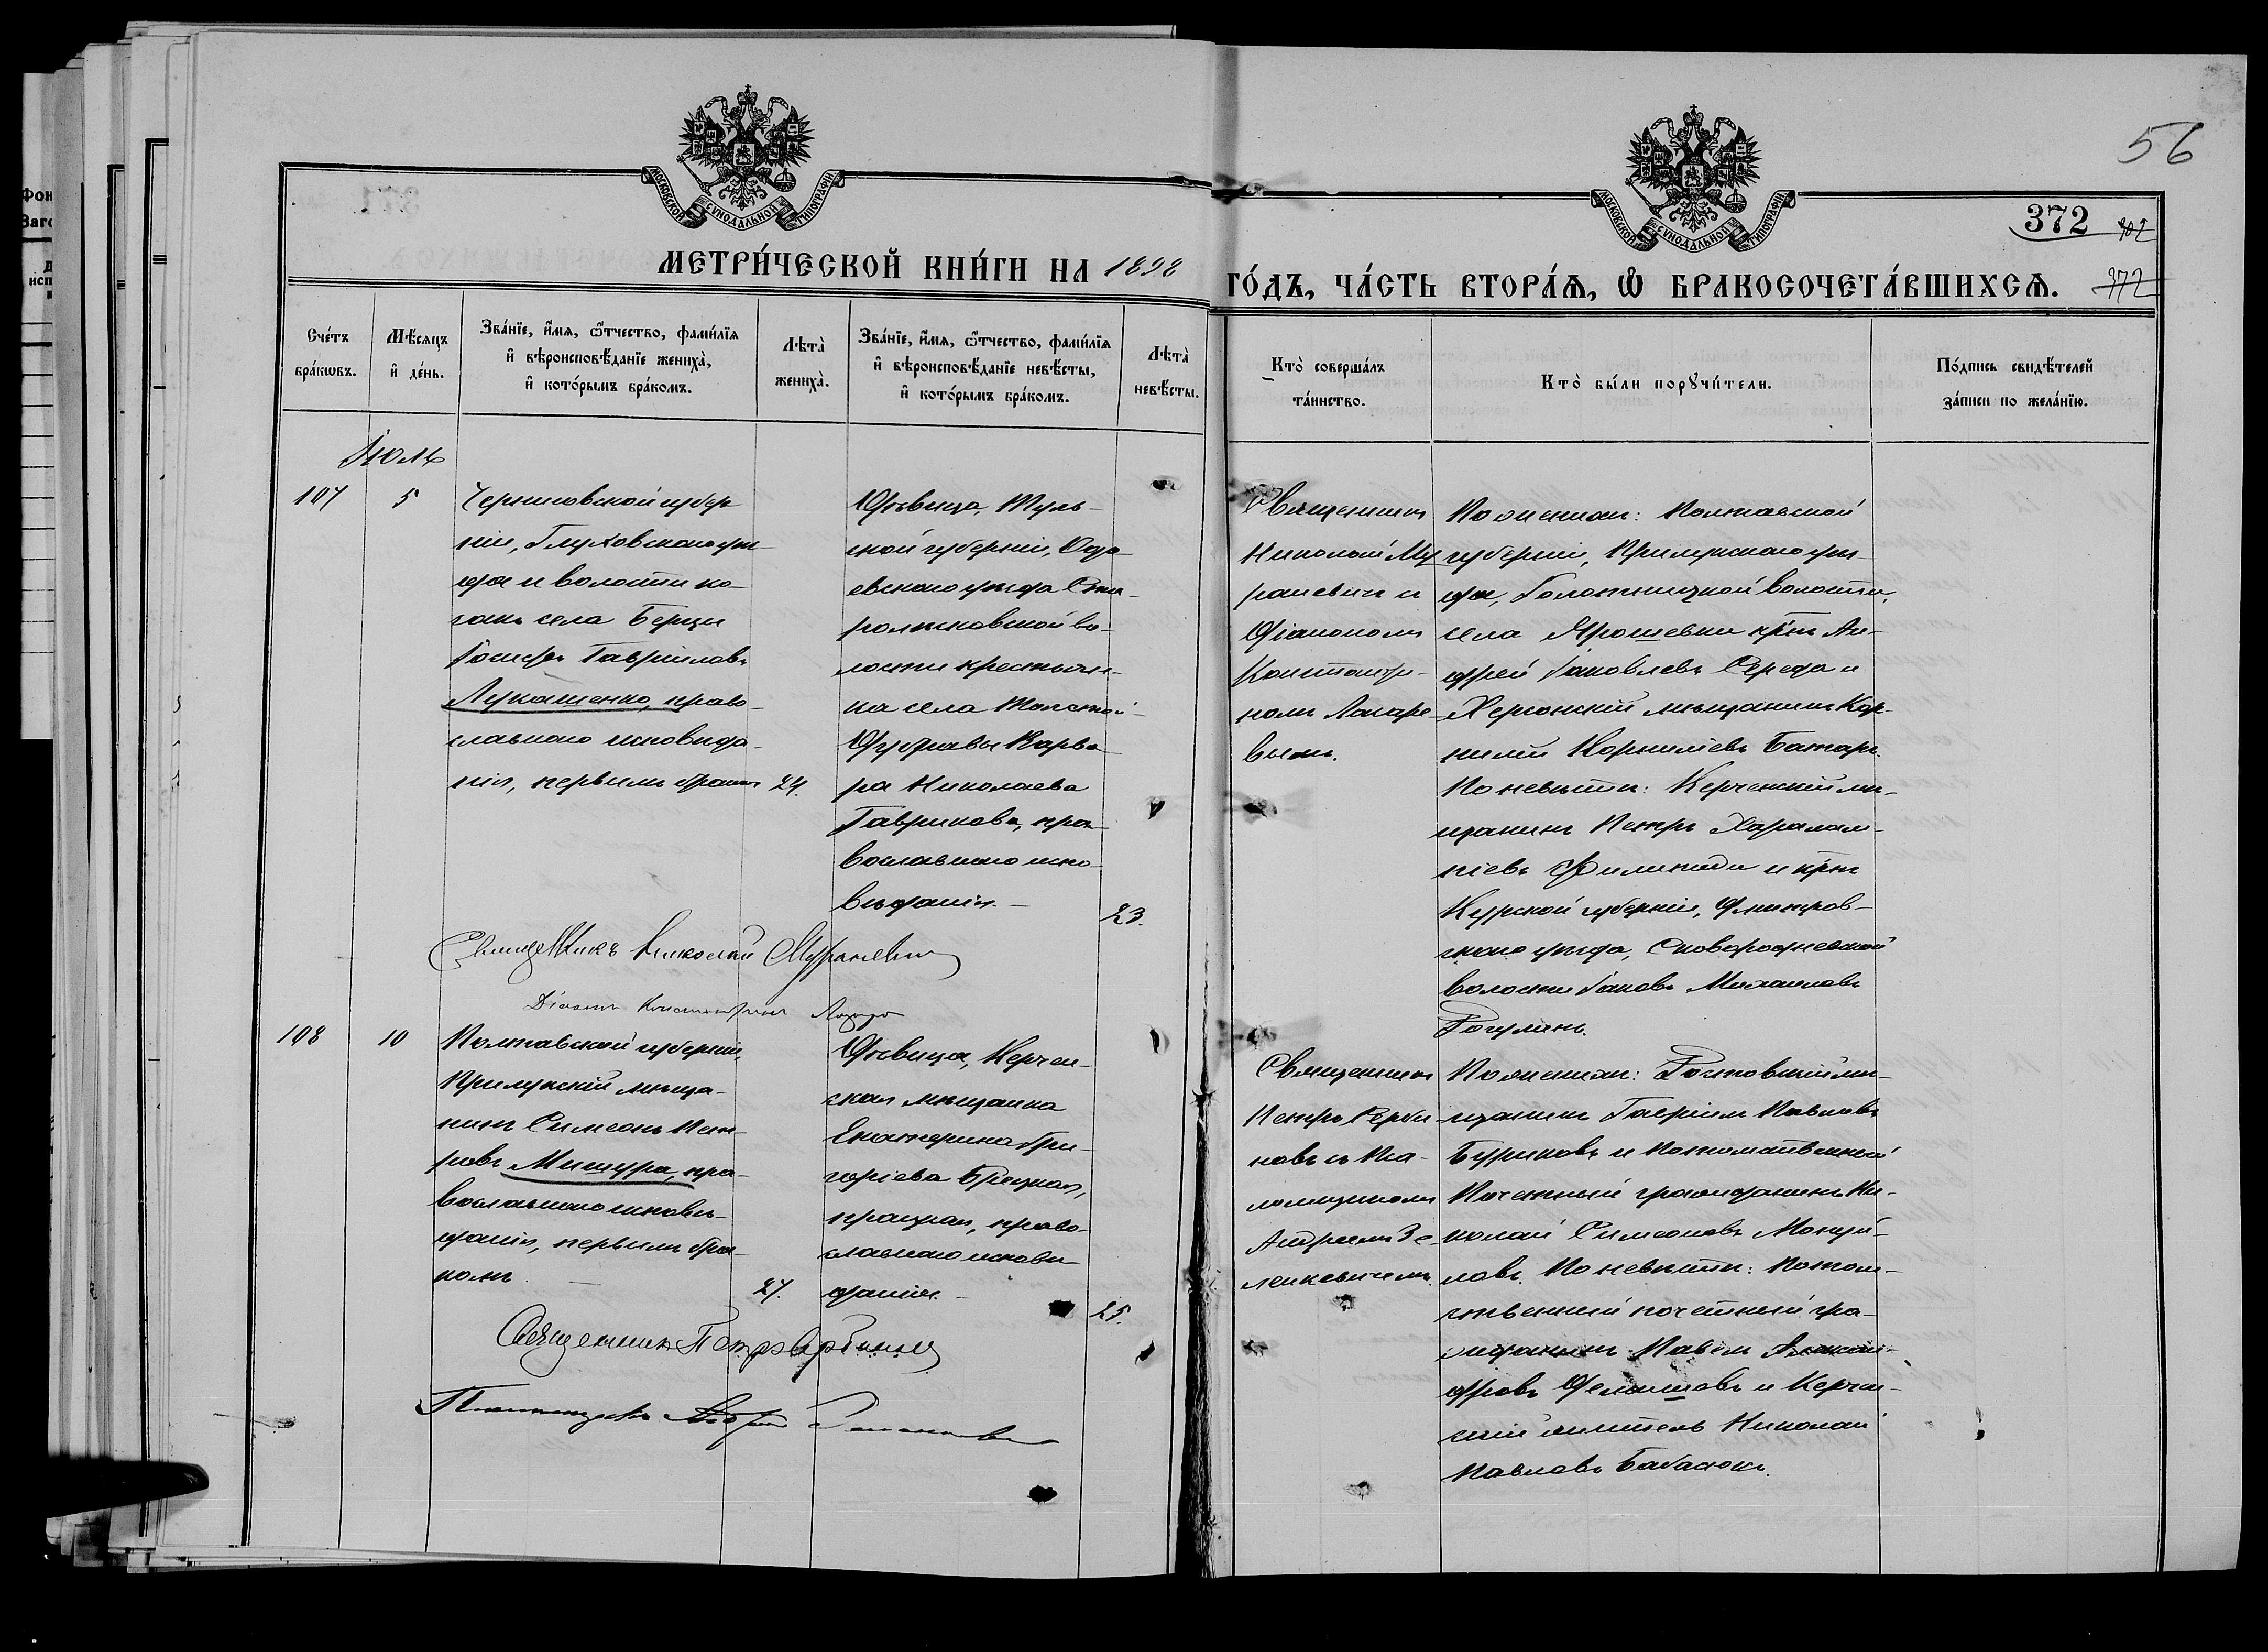 56
МОСКОВСКОЙ СУНОДАЛЬНОЙ ТИПОГРАФІИ
МОСКОВСКОЙ СУНОДАЛЬНОЙ ТИПОГРАФІИ
372
МЕТРИ́ЧЕСКОЙ КНИ́ГИ НА 1898 ГО́ДЪ, ЧА́СТЬ ВТОРА́Ѧ, Ѡ БРАКОСОЧЕТА́ВШИХСѦ.
372
Сче́тъ бра́кѡвъ.
Мѣ́сѧцъ и҆ де́нь.
Зва́нїе, и҆́мѧ, ѻ҆́тчество, фами́лїѧ и҆ вѣроисповѣ́данїе жениха̀, и҆ кото́рымъ бра́комъ.
Лѣта̀ жениха̀.
Зва́нїе, и҆́мѧ, ѻ҆́тчество, фами́лїѧ и҆ вѣроисповѣ́данїе невѣ́сты, и҆ кото́рымъ бра́комъ.
Лѣта̀ невѣ́сты.
Кто̀ соверша́лъ та́инство.
Кто̀ бы́ли порꙋчи́тели.
По́дпись свидѣ́телей за́писи по жела́нїю.
Іюль
107
5
Черниговской губер
ніи, Глуховскаго уѣз-
да и волости ко-
закъ села Берцы
Іосифъ Гавріиловъ
Лукашенко, право-
славнаго исповѣда-
нія, первымъ бракомъ
24.
Дѣвица, Туль-
ской губерніи, Одо-
евскаго уѣзда Ста-
рольсковской во-
лости крестьян-
ка села Толстой
Дубравы Варва-
ра Николаева
Гаврикова, пра-
вославнаго испо-
вѣданія.
23.
Священникъ
Николай Му
раневичъ и
Діакономъ
Константи-
номъ Лазаре-
вымъ.
По женихѣ: Полтавской
губерніи, Прилукскаго уѣз-
да, Голотницкой волости,
села Ярошевки кр-нъ Ан-
дрей Іаковлевъ Середа и
Херсонскій мѣщанинъ Кор-
нилій Корниліевъ Батаръ.
По невѣстѣ: Керченскій мѣ-
щанинъ Петръ Харалам-
піевъ Филипиди и кр-нъ
Курской губерніи, Дмитров-
скаго уѣзда, Сковородневской
волости Іаковъ Михаиловъ
Рогулинъ.
Священникъ Николай Мураневичъ
Діаконъ Константинъ
108
10
Полтавской губерніи
Прилукскій мѣща-
нинъ Симеонъ Пет-
ровъ Мишура, пра-
вославнаго исповѣ-
данія, первымъ бра-
комъ.
27.
Дѣвица, Керчен-
ская мѣщанка
Екатерина Гри-
горіева Брецкая,
православнаго исповѣ-
данія.
25.
Священникъ
Петръ Серби
новъ съ Пса-
ломщикомъ
Андреемъ Зе-
ленкевичемъ.
По женихѣ: Ростовскій мѣ-
щанинъ Гавріилъ Павловъ
Буриковъ и Потомственный
Почетный гражданинъ Ни-
колай Симеоновъ Мануй-
ловъ. По невѣстѣ: Потом-
ственный почетный гра-
жданинъ Павелъ Алексан-
дровъ и Керчен-
скій житель Николай
Павловъ Бабасюкъ.
Священникъ Петръ Сербиновъ
Псаломщикъ Андрей